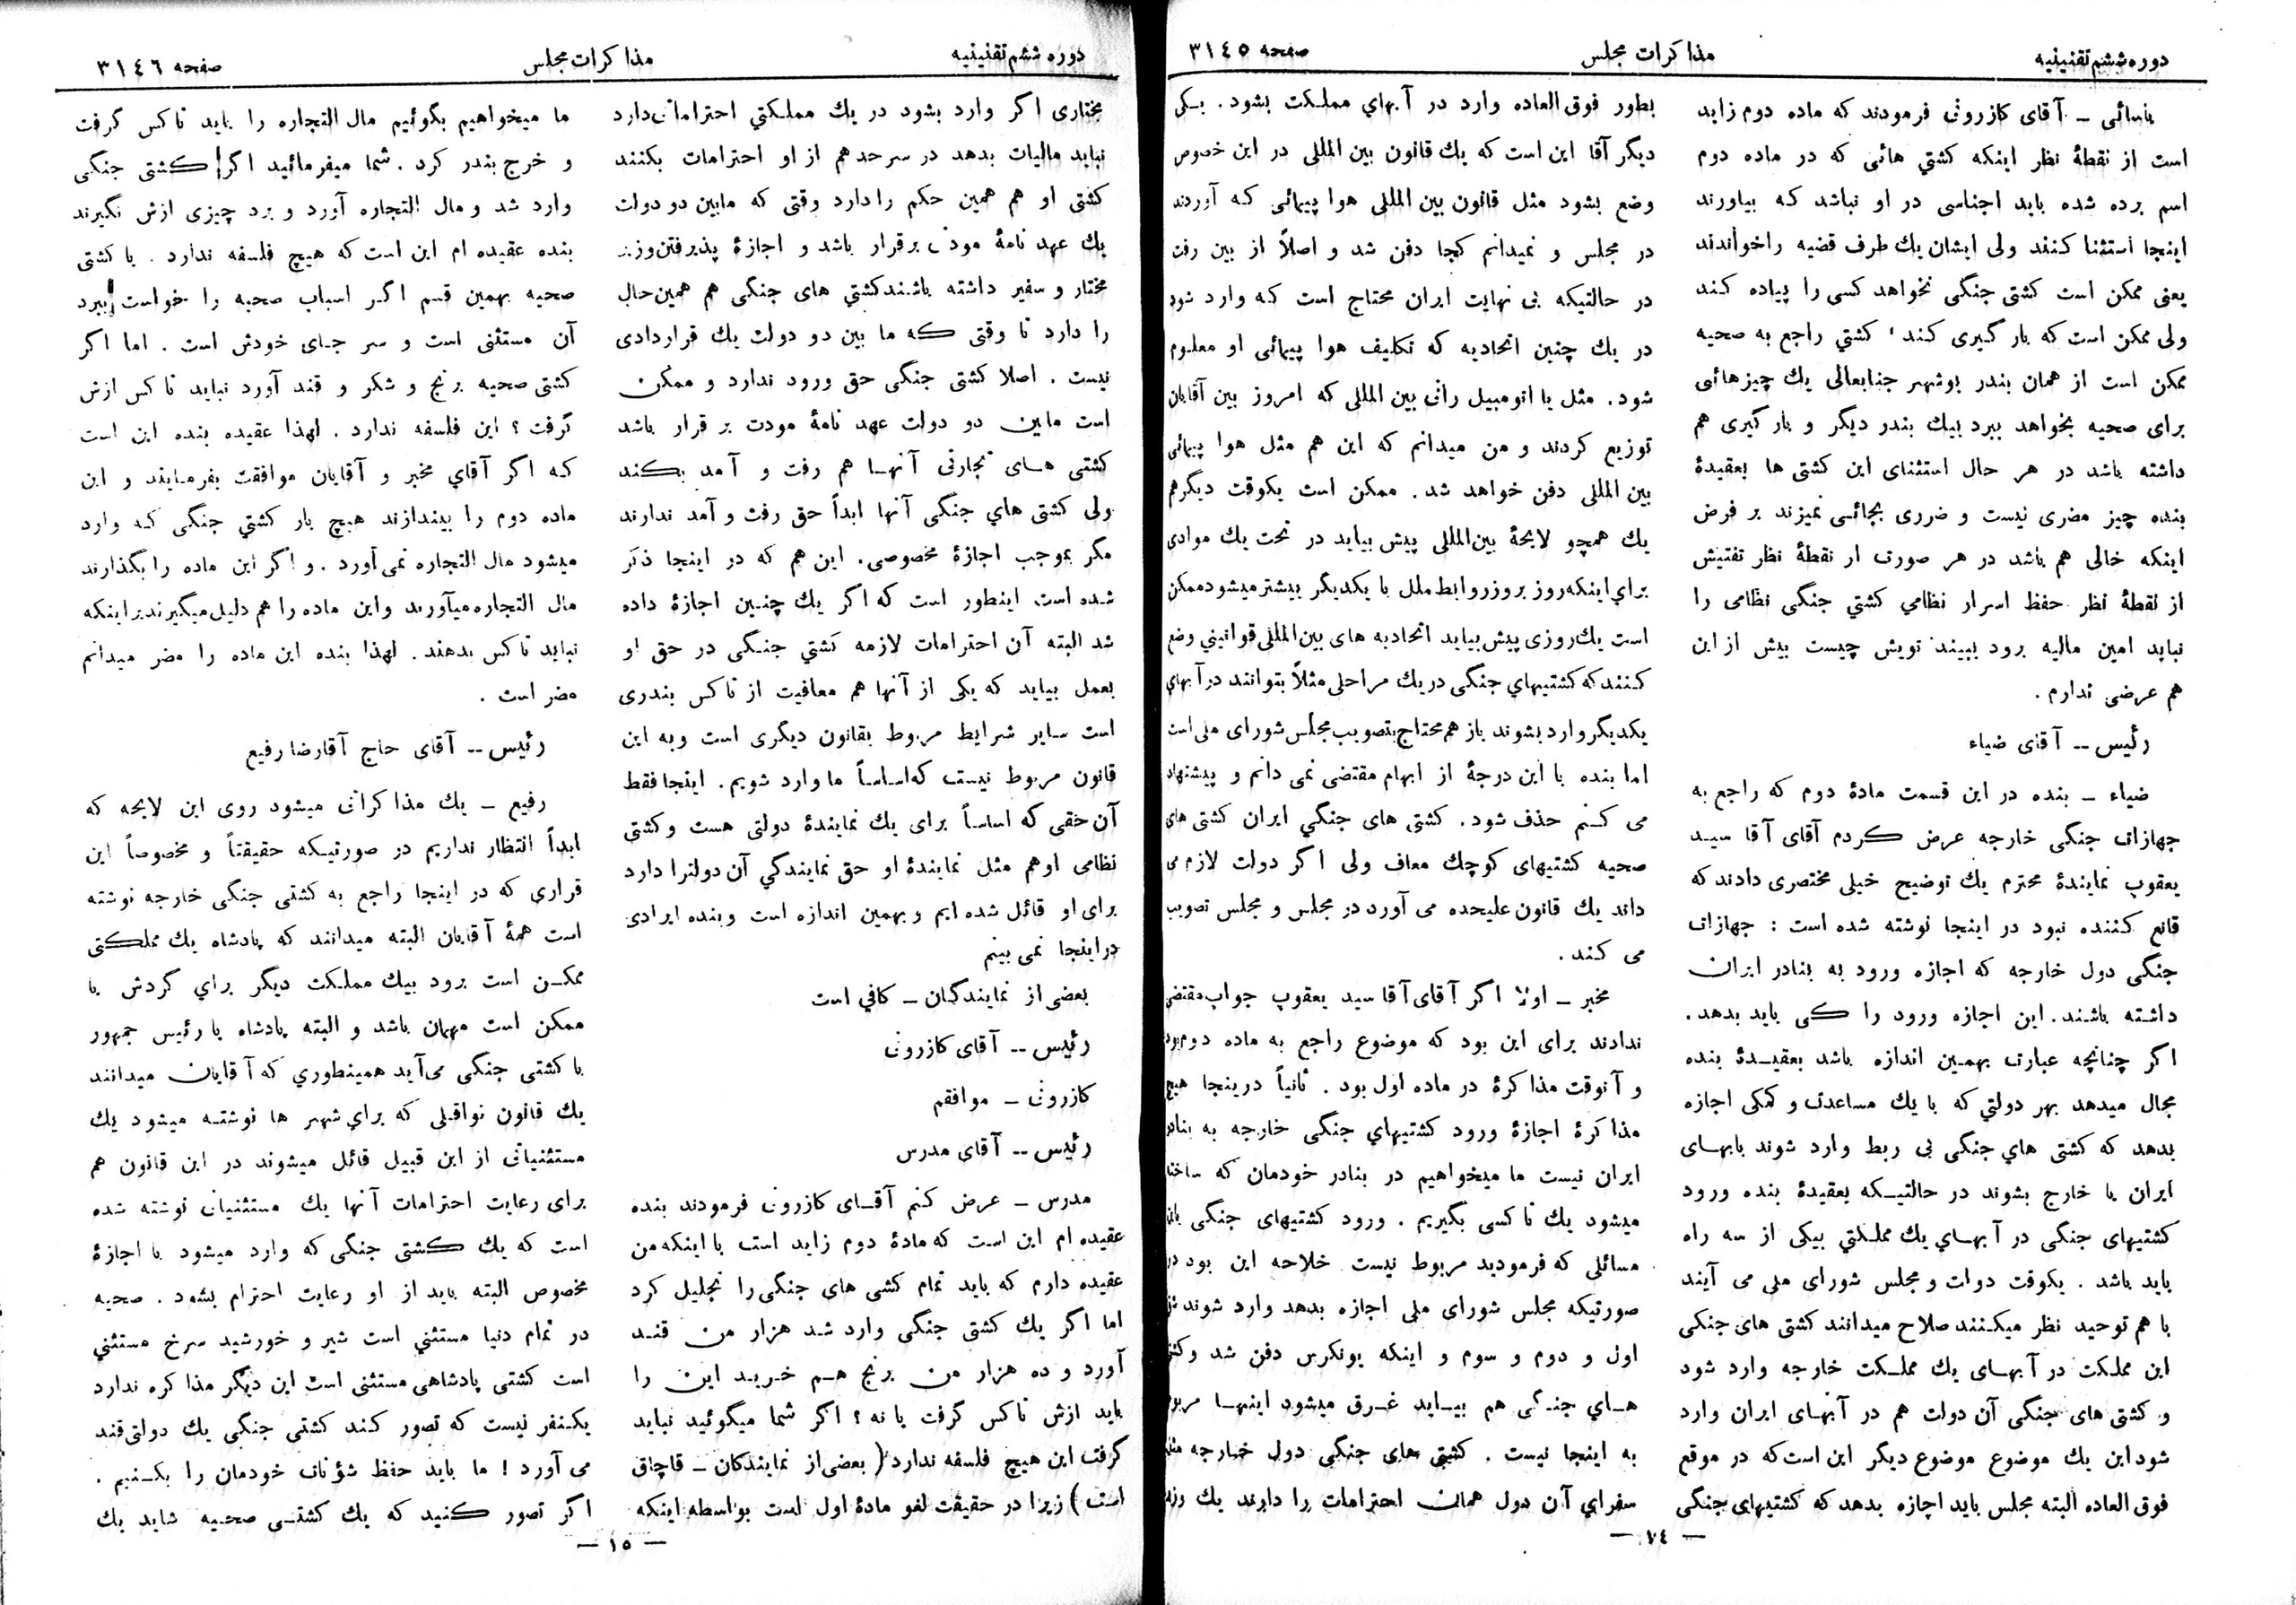 دوره ششم تقنینیه
مذاکرات مجلس
صفحه ۳۱٤٥
یاسائی ــ آقای کازرونی فرمودند که ماده دوم زاید
است از نقطهٔ نظر اینکه کشتی هائی که در ماده دوم
اسم برده شده باید اجناسی در او نباشد که بیاورند
اینجا استثنا کنند ولی ایشان یك طرف قضیه را خواندند
یعنی ممکن است کشتی جنگی نخواهد کسی را پیاده کند
ولی ممکن است که بار گیری کند ، کشتی راجع به صحیه
ممکن است از همان بندر بوشهر جنابعالی یك چیزهائی
برای صحیه بخواهد ببرد بیك بندر دیگر و بارگیری هم
داشته باشد در هر حال استثنای این کشتی ها بعقیدهٔ
بنده چیز مضری نیست و ضرری بجائی نمیزند بر فرض
اینکه خالی هم باشد در هر صورت از نقطهٔ نظر تفتیش
از نقطهٔ نظر حفظ اسرار نظامی کشتی جنگی نظامی را
نباید امین مالیه برود ببیند تویش چیست بیش از این
هم عرضی ندارم .
رئیس -- آقای ضیاء
ضیاء ــ بنده در این قسمت مادهٔ دوم که راجع به
جهازات جنگی خارجه عرض کردم آقای آقا سید
یعقوب نمایندهٔ محترم یك توضیح خیلی مختصری دادند که
قانع کننده نبود در اینجا نوشته شده است : جهازات
جنگی دول خارجه که اجازه ورود به بنادر ایران
داشته باشند . این اجازه ورود را کی باید بدهد .
اگر چنانچه عبارت بهمین اندازه باشد بعقیدهٔ بنده
مجال میدهد بهر دولتی که با یك مساعدت و کمکی اجازه
بدهد که کشتی های جنگی بی ربط وارد شوند بابهای
ایران یا خارج بشوند در حالتیکه بعقیدهٔ بنده ورود
کشتیهای جنگی در آبهای یك مملکتی بیکی از سه راه
باید باشد . یکوقت دولت و مجلس شورای ملی می آیند
با هم توحید نظر میکنند صلاح میدانند کشتی های جنگی
این مملکت در آبهای یك مملکت خارجه وارد شود
و کشتی های جنگی آن دولت هم در آبهای ایران وارد
شود این یك موضوع موضوع دیگر این است که در موقع
فوق العاده البته مجلس باید اجازه بدهد که کشتیهای جنگی
بطور فوق العاده وارد در آبهای مملکت بشود . یکی
دیگر آقا این است که یك قانون بین المللی در این خصوص
وضع بشود مثل قانون بین المللی هوا پیمائی که آوردند
در مجلس و نمیدانم کجا دفن شد و اصلاً از بین رفت
در حالتیکه بی نهایت ایران محتاج است که وارد شود
در یك چنین اتحادیه که تکلیف هوا پیمائی او معلوم
شود . مثل یا اتومبیل رانی بین المللی که امروز بین آقایان
توزیع کردند و من میدانم که این هم مثل هوا پیمائی
بین المللی دفن خواهد شد . ممکن است یکوقت دیگرهم
یك همچو لایحهٔ بین‌المللی پیش بیاید در تحت یك موادی
برای اینکه روز بروز روابط ملل با یکدیگر بیشتر میشود ممکن
است یك روزی پیش بیاید اتحادیه های بین‌المللی قوانینی وضع
کنند که کشتیهای جنگی در یك مراحلی مثلاً بتوانند در آبهای
یکدیگر وارد بشوند باز هم محتاج بتصویب مجلس شورای ملی است
اما بنده با این درجهٔ از ابهام مقتضی نمی دانم و پیشنهاد
می کنم حذف شود . کشتی های جنگی ایران کشتی های
صحیه کشتیهای کوچك معاف ولی اگر دولت لازم می
داند یك قانون علیحده می آورد در مجلس و مجلس تصویب
می کند .
مخبر ــ اولا اگر آقای آقا سید یعقوب جواب مقتضی
ندادند برای این بود که موضوع راجع به ماده دوم بود
و آنوقت مذاکرهٔ در ماده اول بود . ثانیاً در ینجا هیچ
مذاکرهٔ اجازهٔ ورود کشتیهای جنگی خارجه به بنادر
ایران نیست ما میخواهیم در بنادر خودمان که ساخته
میشود یك تاکسی بگیریم . ورود کشتیهای جنگی
مسائلی که فرمودید مربوط نیست خلاحه این بود در
صورتیکه مجلس شورای ملی اجازه بدهد وارد شوند
اول و دوم و سوم و اینکه یونکرس دفن شد
های جنگی هم بیاید غرق میشود اینها
به اینجا نیست . کشتی های جنگی دول خارجه
سفرای آن دول همان احترامات را دارند یك
— ۷٤ —
دوره ششم تقنینیه
مذاکرات مجلس
صفحه ۳۱٤٦
مختاری اگر وارد بشود در یك مملکتی احتراماتی دارد
نباید مالیات بدهد در سرحدهم از او احترامات بکنند
کشتی او هم همین حکم را دارد وقتی که مابین دو دولت
یك عهد نامهٔ مودتی برقرار باشد و اجازهٔ پذیرفتن وزیر
مختار و سفیر داشته باشند کشتی های جنگی هم همین حال
را دارد تا وقتی که ما بین دو دولت یك قراردادی
نیست . اصلا کشتی جنگی حق ورود ندارد و ممکن
است مابین دو دولت عهد نامهٔ مودت بر قرار باشد
کشتی های تجارتی آنها هم رفت و آمد بکند
ولی کشتی های جنگی آنها ابداً حق رفت و آمد ندارند
مگر بموجب اجازهٔ مخصوصی . این هم که در اینجا ذکر
شده است اینطور است که اگر یك چنین اجازهٔ داده
شد البته آن احترامات لازمه کشتی جنگی در حق او
بعمل بیاید که یکی از آنها هم معافیت از تاکس بندری
است سایر شرایط مربوط بقانون دیگری است و به این
قانون مربوط نیست که اساساً ما وارد شویم . اینجا فقط
آن حقی که اساساً برای یك نمایندهٔ دولتی هست و کشتی
نظامی اوهم مثل نمایندهٔ او حق نمایندگی آن دولترا دارد
برای او قائل شده ایم و بهمین اندازه است و بنده ایرادی
در اینجا نمی بینم
بعضی از نمایندگان ــ کافی است
رئیس -- آقای کازرونی
کازرونی ــ موافقم
رئیس -- آقای مدرس
مدرس ــ عرض کنم آقای کازرونی فرمودند بنده
عقیده ام این است که مادهٔ دوم زاید است با اینکه من
عقیده دارم که باید تمام کشی های جنگی را تجلیل کرد
اما اگر یك کشتی جنگی وارد شد هزار من قند
آورد و ده هزار من برنج هم خرید این را
باید ازش تاکس گرفت یا نه ؟ اگر شما میگوئید نباید
گرفت این هیچ فلسفه ندارد ( بعضی از نمایندکان ــ قاچاق
است ) زیرا در حقیقت لغو مادهٔ اول است بواسطه اینکه
ما میخواهیم بگوئیم مال التجاره را باید تاکس گرفت
و خرج بندر کرد . شما میفرمائید اگر کشتی جنگی
وارد شد و مال التجاره آورد و برد چیزی ازش نگیرند
بنده عقیده ام این است که هیچ فلسفه ندارد . یا کشتی
صحیه بهمین قسم اگر اسباب صحیه را خواست ببرد
آن مستثنی است و سر جای خودش است . اما اگر
کشتی صحیه برنج و شکر و قند آورد نباید تاکس ازش
گرفت ؟ این فلسفه ندارد . لهذا عقیده بنده این است
که اگر آقای مخبر و آقایان موافقت بفرمایند و این
ماده دوم را بیندازند هیچ بار کشتی جنگی که وارد
میشود مال التجاره نمی آورد . و اگر این ماده را بگذارند
مال التجاره میآورند واین ماده را هم دلیل میگیرند بر اینکه
نباید تاکس بدهند . لهذا بنده این ماده را مضر میدانم
مضر است .
رئیس -- آقای حاج آقارضا رفیع
رفیع ــ یك مذاکراتی میشود روی این لایحه که
ابداً انتظار نداریم در صورتیکه حقیقتاً و مخصوصاً این
قراری که در اینجا راجع به کشتی جنگی خارجه نوشته
است همهٔ آقایان البته میدانند که پادشاه یك مملکتی
ممکن است برود بیك مملکت دیگر برای گردش یا
ممکن است مهمان باشد و البته پادشاه یا رئیس جمهور
با کشتی جنگی می‌آید همینطوری که آقایان میدانند
یك قانون نواقلی که برای شهر ها نوشته میشود یك
مستثنیاتی از این قبیل قائل میشوند در این قانون هم
برای رعایت احترامات آنها یك مستثنیاتی نوشته شده
است که یك کشتی جنگی که وارد میشود با اجازهٔ
مخصوص البته باید از او رعایت احترام بشود . صحیه
در تمام دنیا مستثنی است شیر و خورشید سرخ مستثنی
است کشتی پادشاهی مستثنی است این دیگر مذاکره ندارد
یکنفر نیست که تصور کند کشتی جنگی یك دولتی قند
می آورد ! ما باید حفظ شؤنات خودمان را بکنیم .
اگر تصور کنید که یك کشتی صحیه شاید یك
— ۱٥ —